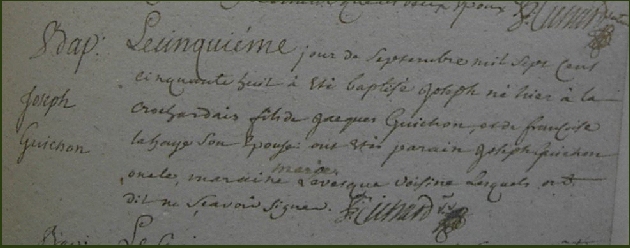 Bap: Le cinquiéme jour de Septembre mil sept Cent
cinquante huit à eté baptisé Joseph né hier à la
Joseph
Guichon
Crochardais fils de Jacques Guichon, et de françoise
lahaye Son Epouse ont etés parain Joseph Guichon
oncle, maraine marie Levesque voisine lesquels ont
dit ne sçavoir signer.